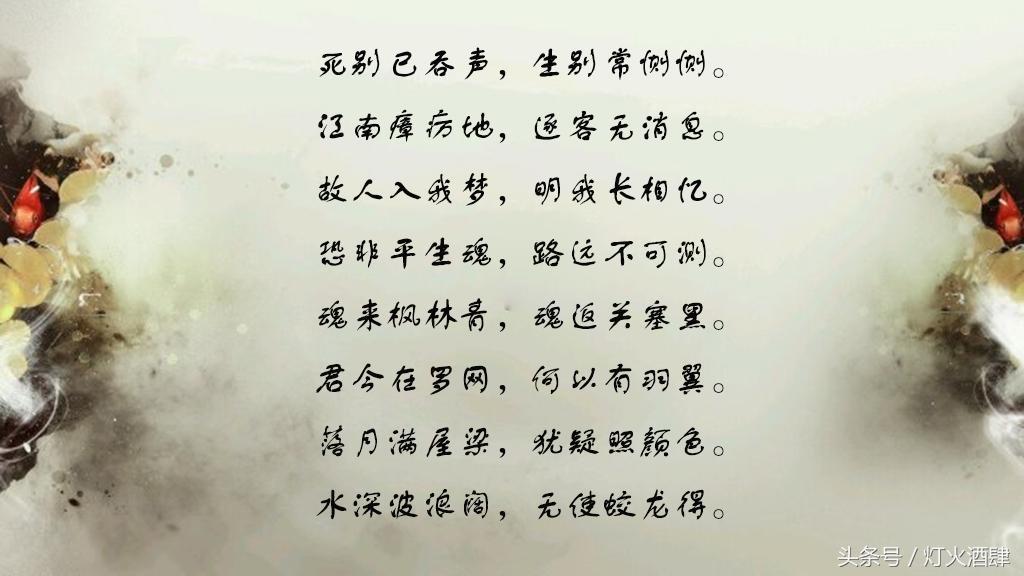 死别已吞声，生别常恻恻。
江南瘴疠地，逐客无消息。
故人入我梦，明我长相忆。
恐非平生魂，路远不可测。
魂来枫林青，魂返关塞黑。
君今在罗网，何以有羽翼。
落月满屋梁，犹疑照颜色。
水深波浪阔，无使蛟龙得。
头条号 / 灯火酒肆